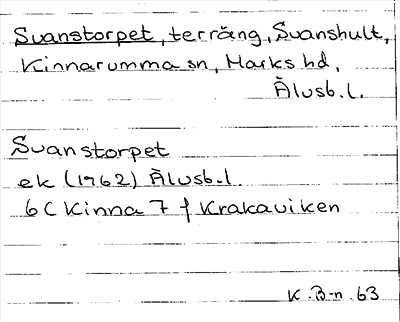 Svanstorpet, terräng, Svanshult,
Kinnarumma sn, Marks hd,
Älvsb. l.
Svanstorpet
ek (1962) Älvsb. l.
6 C Kinna 7 f Krakaviken
K. B-n. 63